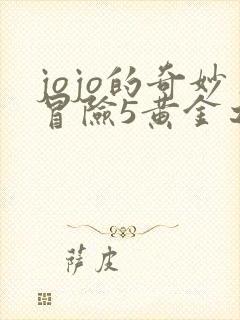 jojo的奇妙
冒險5黃金
萨皮